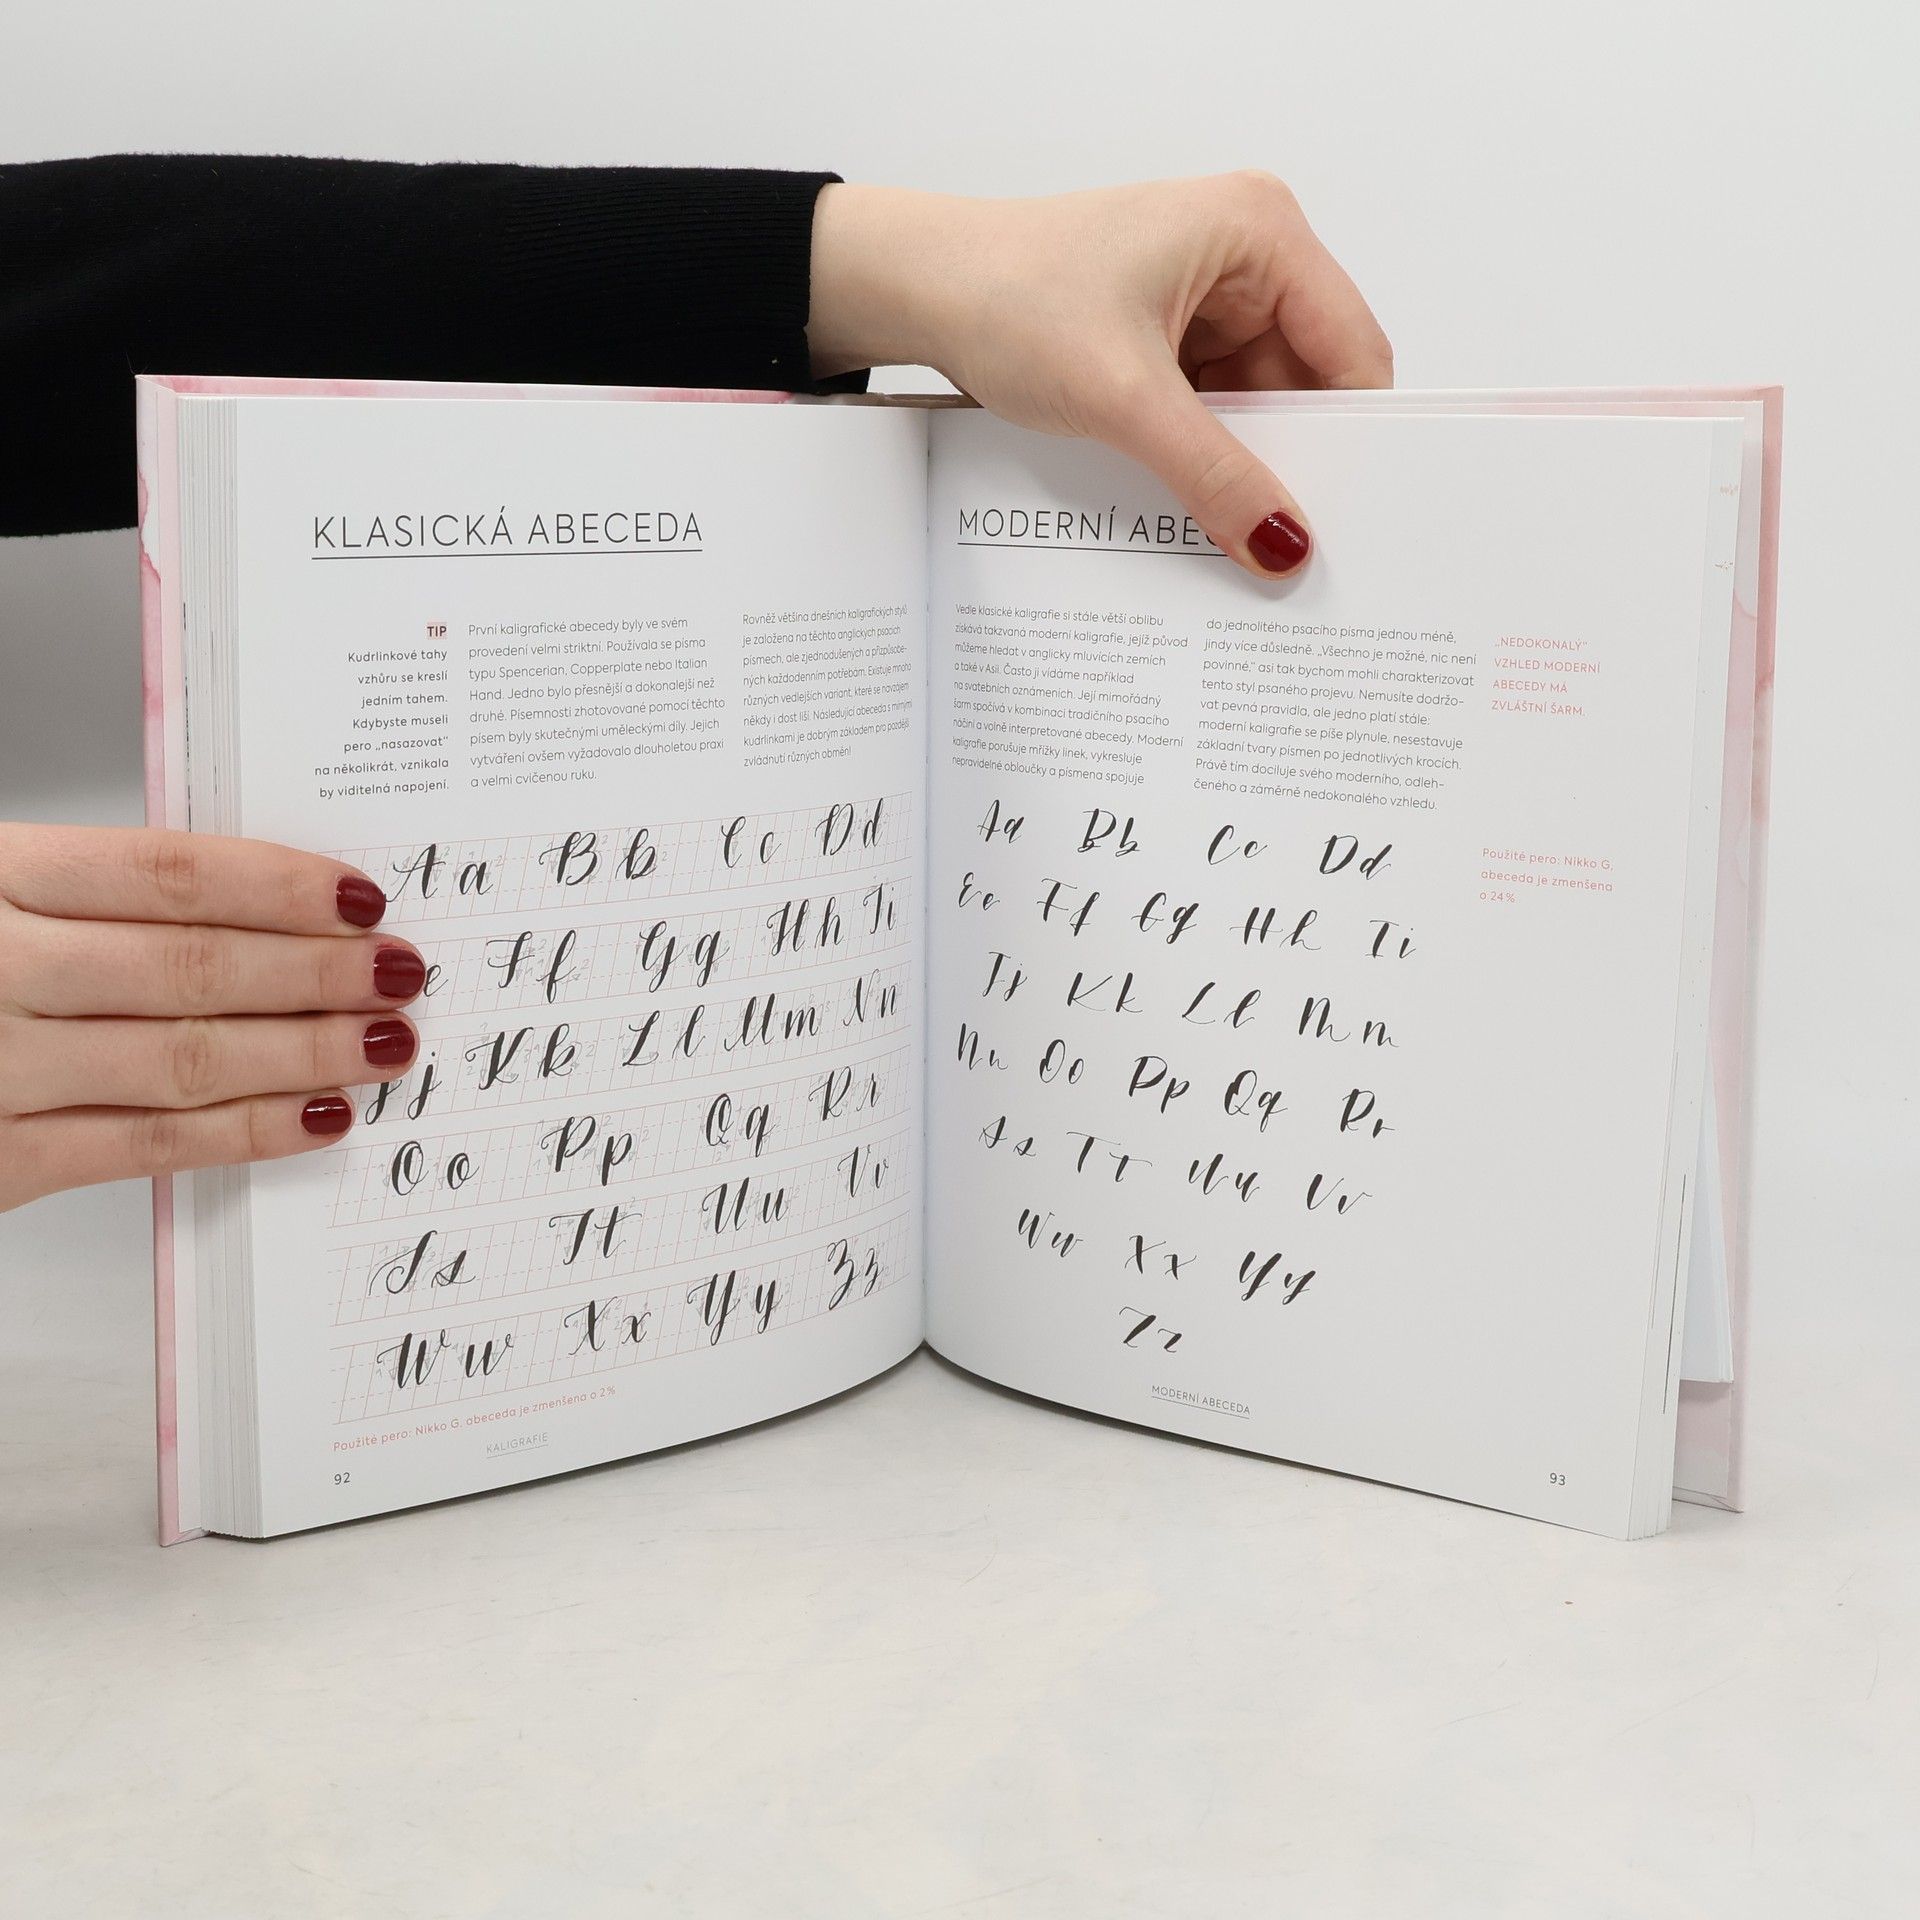 KLASICKÁ ABECEDA
TIP
Kudrlinkové tahy
vzhůru se kreslí
jedním tahem.
Kdybyste museli
pero „nasazovat“
na několikrát, vznikala
by viditelná napojení.
První kaligrafické abecedy byly ve svém
provedení velmi striktní. Používala se písma
typu Spencerian, Copperplate nebo Italian
Hand. Jedno bylo přesnější a dokonalejší než
druhé. Písemnosti zhotovované pomocí těchto
písem byly skutečnými uměleckými díly. Jejich
vytváření ovšem vyžadovalo dlouholetou praxi
a velmi cvičenou ruku.
Rovněž většina dnešních kaligrafických stylů
je založena na těchto anglických psacích
písmech, ale zjednodušených a přizpůsobe-
ných každodenním potřebám. Existuje mnoho
různých vedlejších variant, které se navzájem
někdy i dost liší. Následující abeceda s mírnými
kudrlinkami je dobrým základem pro pozdější
zvládnutí různých obměn!
A a B b C c D d
e F f G g H h I i
j K k L l M m N n
O o P p Q q R r
S s T t U u V v
W w X x Y y Z z
Použité pero: Nikko G, abeceda je zmenšena o 2 %
KALIGRAFIE
92
MODERNÍ
Vedle klasické kaligrafie si stále větší oblibu
získává takzvaná moderní kaligrafie, jejíž původ
můžeme hledat v anglicky mluvicích zemích
a také v Asii. Často ji vídáme například
na svatebních oznámeních. Její mimořádný
šarm spočívá v kombinaci tradičního psacího
náčiní a volně interpretované abecedy. Moderní
kaligrafie porušuje mřížky linek, vykresluje
nepravidelné obloučky a písmena spojuje
do jednolitého psacího písma jednou méně,
jindy více důsledně. „Všechno je možné, nic není
povinné,“ asi tak bychom mohli charakterizovat
tento styl psaného projevu. Nemusíte dodržo-
vat pevná pravidla, ale jedno platí stále:
moderní kaligrafie se píše plynule, nesestavuje
základní tvary písmen po jednotlivých krocích.
Právě tím dociluje svého moderního, odleh-
čeného a záměrně nedokonalého vzhledu.
„NEDOKONALÝ“
VZHLED MODERNÍ
ABECEDY MÁ
ZVLÁŠTNÍ ŠARM.
Použité pero: Nikko G,
abeceda je zmenšena
o 24 %
Aa Bb Cc Dd
Ee Ff Gg Hh Ii
Jj Kk Ll Mm
Nn Oo Pp Qq Rr
Ss Tt Uu Vv
Ww Xx Yy
Zz
MODERNÍ ABECEDA
93